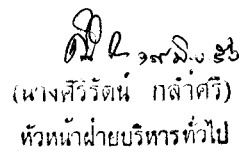 ๑๙ มิ.ย. ๕๖
(นางศิริรัตน์ กล่ำศรี)
หัวหน้าฝ่ายบริหารทั่วไป